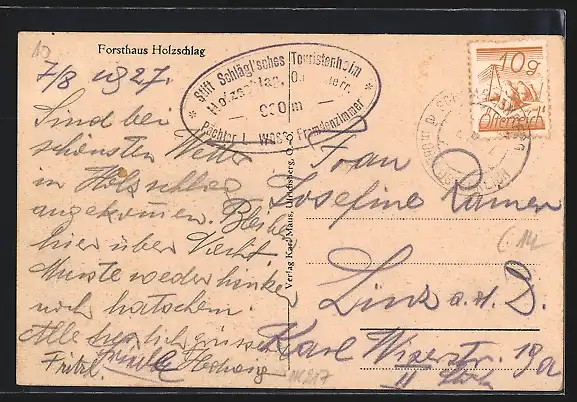 10
Forsthaus Holzschlag
7/8 1927.
Sind bei
schönstem Wetter
in Holzschlag
angekommen. Bleiben
hier über Nacht.
Musste weder hinken
noch hatschen.
Alle herzlich grüssen
Fritzl. Hedwig
Stift Schlägl'sches Touristenheim
Holzschlag, O.
930 m
Pächter L. Fremdenzimmer
Verlag Karl Maus, Ulrichsberg, O.
10g
Österreich
Frau
Josefine Ramer
Linz a. d. D.
Karl Wiserstr. 19a
II Stock